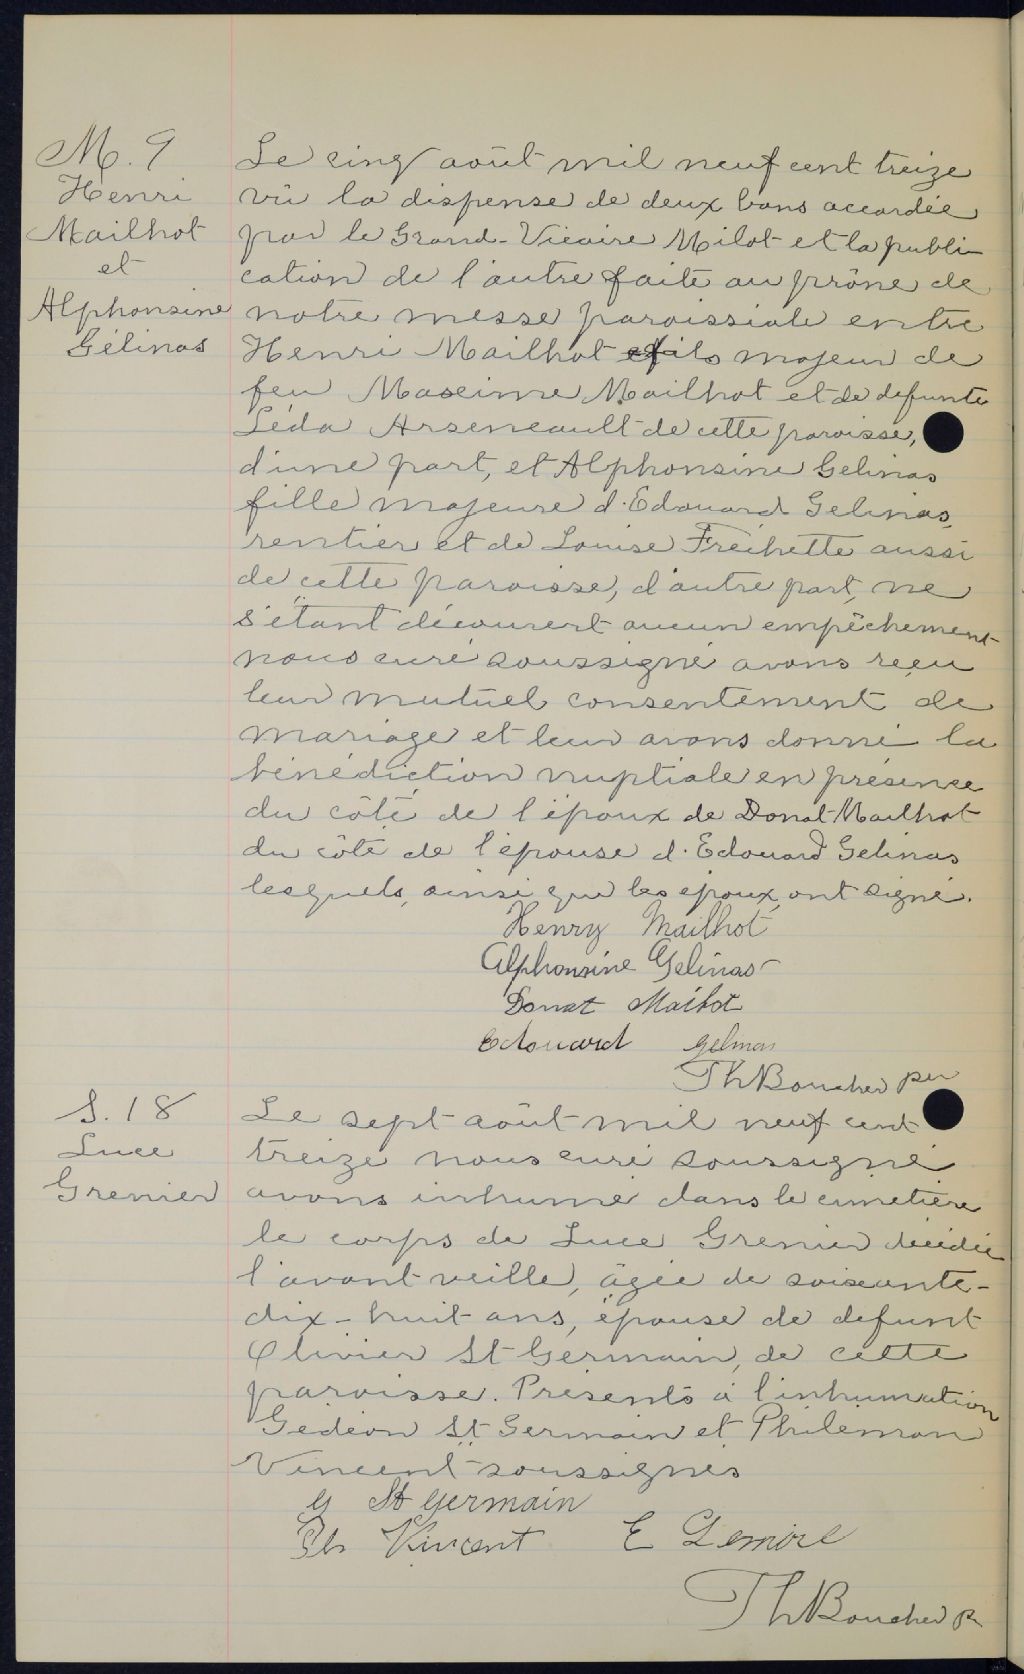 M. 9
Henri
Mailhot
et
Alphonsine
Gélinas
Le cinq août mil neuf cent treize
vû la dispense de deux bans accordée
par le Grand-Vicaire Milot et la publi-
cation de l'autre faite au prône de
notre messe paroissiale entre
Henri Mailhot fils majeur de
feu Maxime Mailhot et de defunte
Léda Arseneault de cette paroisse,
d'une part, et Alphonsine Gelinas
fille majeure d'Edouard Gelinas,
rentier et de Louise Fréchette aussi
de cette paroisse, d'autre part, ne
s'étant découvert aucun empêchement
nous curé soussigné avons reçu
leur mutuel consentement de
mariage et leur avons donné la
bénédiction nuptiale en présence
du côté de l'époux de Donat Mailhot
du côté de l'épouse d'Edouard Gelinas
lesquels, ainsi que les époux, ont signé.
Henry Mailhot
Alphonsine Gelinas
Donat Mailot
Edouard Gelinas
Th Boucher ptr
S. 18
Luce
Grenier
Le sept août mil neuf cent
treize nous curé soussigné
avons inhumé dans le cimetière
le corps de Luce Grenier décédée
l'avant veille, âgée de soixante-
dix-huit ans, épouse de defunt
Olivier St Germain, de cette
paroisse. Présents à l'inhumation
Gédéon St Germain et Philemon
Vincent soussignés
G St Germain
Ph Vincent E Lemire
Th Boucher